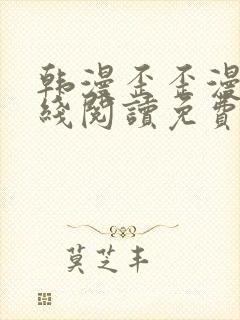 韩漫歪歪漫
线阅读免费
莫芝丰